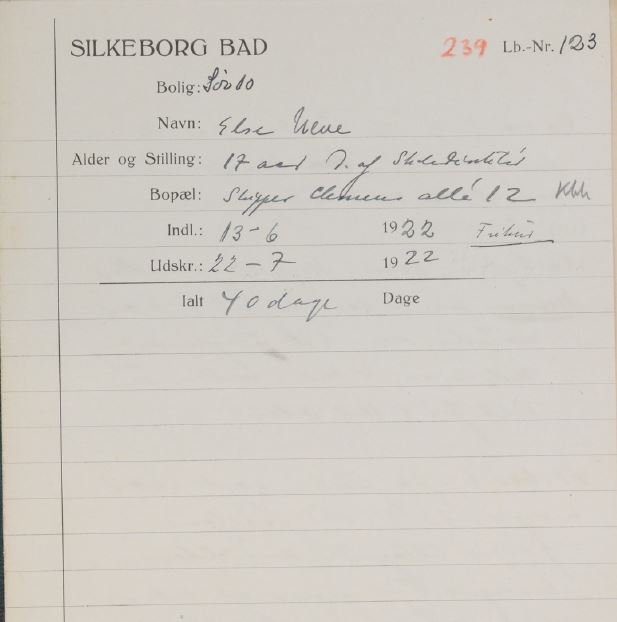 SILKEBORG BAD 239 Lb.-Nr. 123
Bolig: Sös 10
Navn: Else
Alder og Stilling: 17 aar D. af
Bopæl: Skipper Clemens allé 12 Kbh
Indl.: 13-6 1922 Frikur
Udskr.: 22-7 1922
Ialt 40 dage Dage